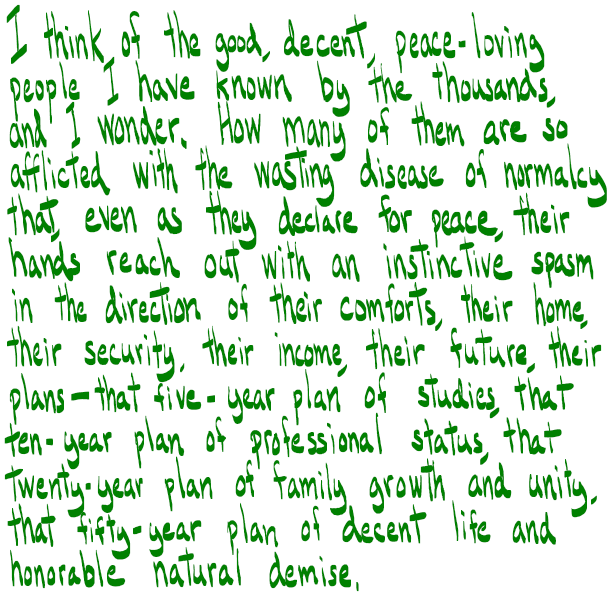 I think of the good, decent, peace-loving
people I have known by the thousands,
and I wonder. How many of them are so
afflicted with the wasting disease of normalcy
that, even as they declare for peace, their
hands reach out with an instinctive spasm
in the direction of their comforts, their home,
their security, their income, their future, their
plans—that five-year plan of studies, that
ten-year plan of professional status, that
twenty-year plan of family growth and unity,
that fifty-year plan of decent life and
honorable natural demise.